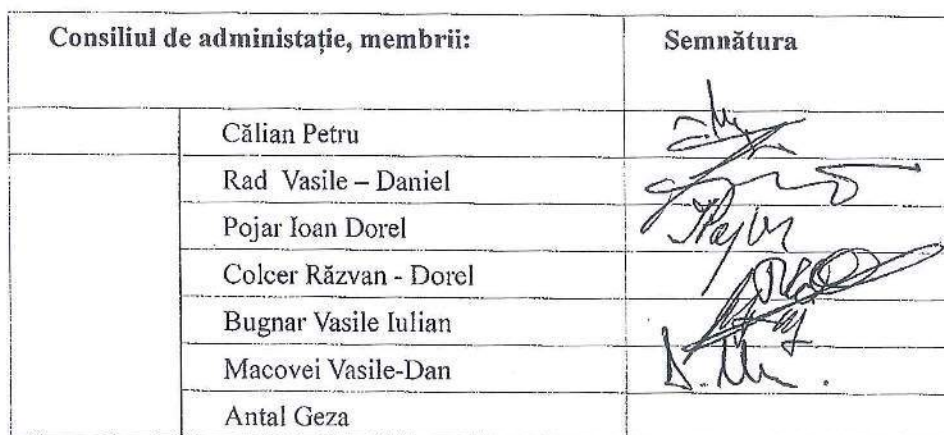 Consiliul de administație, membrii: Semnătura
Călian Petru
Rad Vasile – Daniel
Pojar Ioan Dorel
Colcer Răzvan - Dorel
Bugnar Vasile Iulian
Macovei Vasile-Dan
Antal Geza